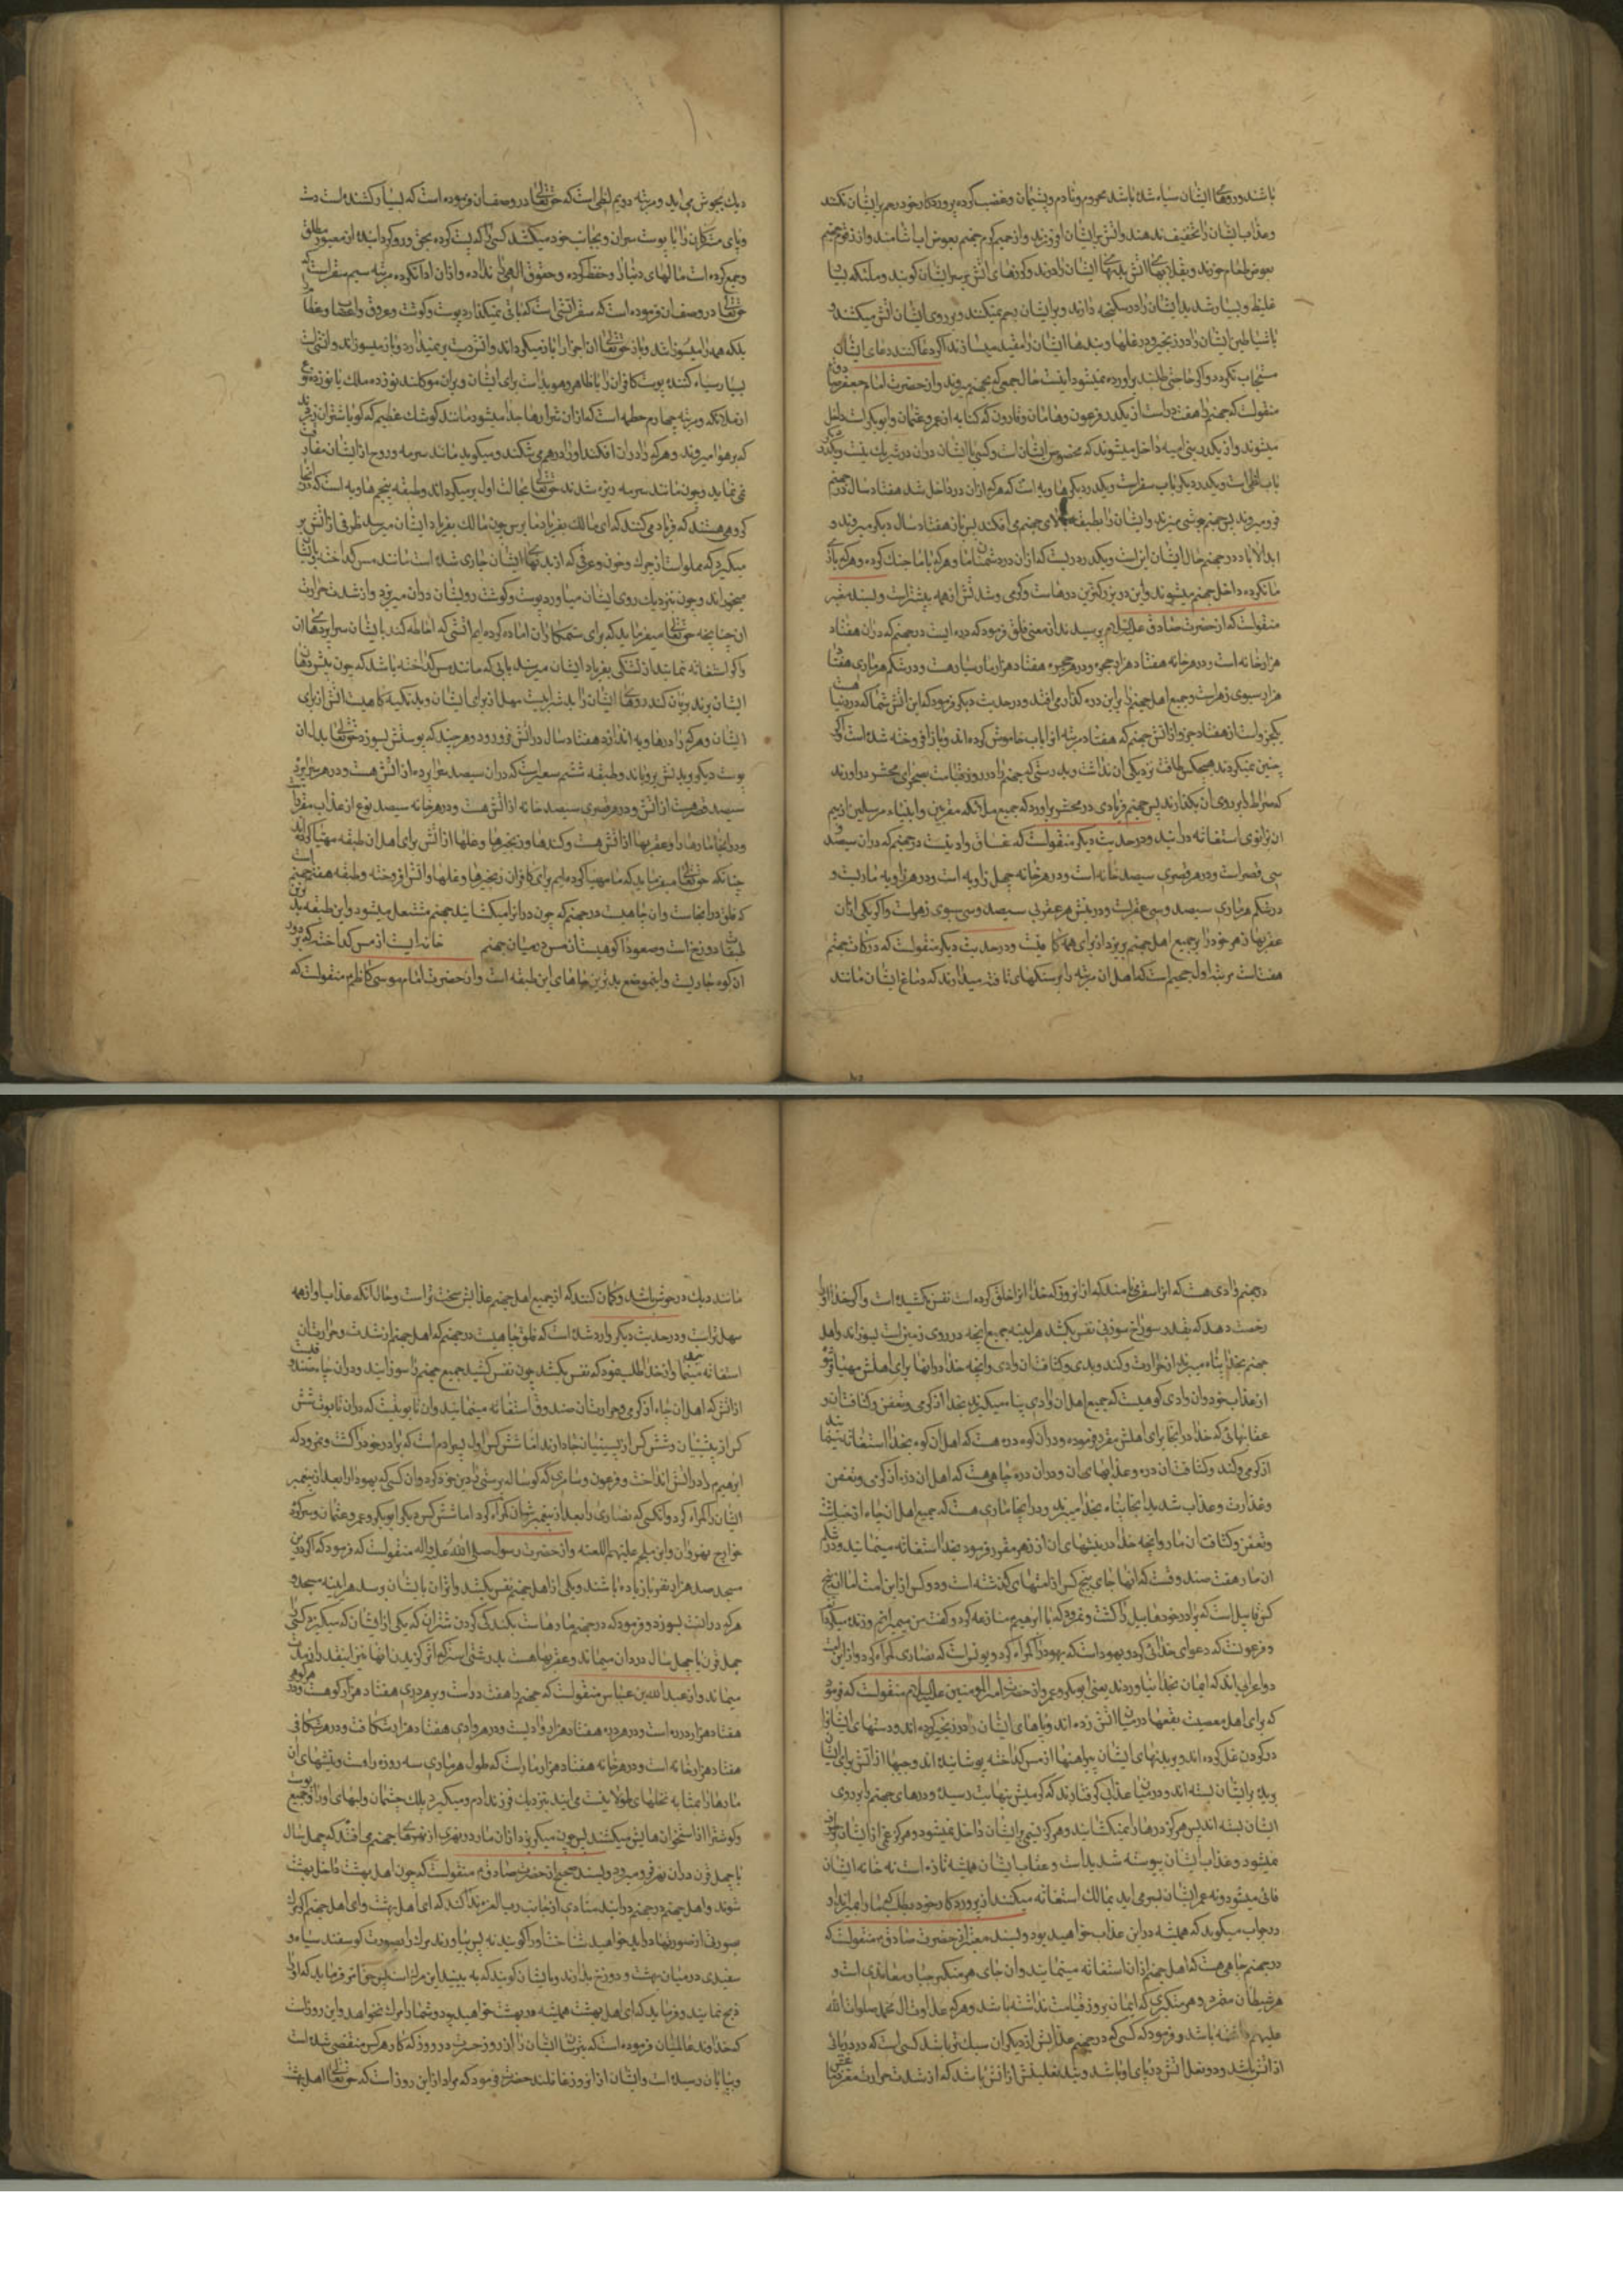 باشند و روهای ایشان سیاه شده باشد محروم و نادم و پشیمان و غضب کرده پروردکار خود رحم بر ایشان نکنند
و عذاب ایشان را تخفیف ندهند و اتش بر ایشان افروزند و از حمیم کرم جهنم بعوض اب اشامند و از زقوم جهنم
بعوض طعام خورند و بقلابهای اتش بدنهای ایشان را درند و کرزهای اتش بر سر ایشان کوبند و ملئکه بسیا
غلیظ و بسیار شدید ایشان را در شکنجه دارند و بر ایشان رحم نمیکنند و بر روی ایشان اتش میکشند و
با شیاطین ایشان را در زنجیر و در غلها و بندها ایشان را مقید میسازند اکر دعا کنند دعای ایشان
مستجاب نکردد و اکر حاجتی طلبند براورده نمیشود اینست حال جمعی که بجهنم میروند و از حضرت امام جعفر
منقولست که جهنم را هفت در است از یکدر فرعون و هامان و قارون که کنایه از عمر و عثمان و ابوبکر است داخل
میشوند و از یکدر بنی امیه داخل میشوند که مخصوص ایشان است و کسی با ایشان در ان در شریک نیست و یکدر
باب لظی است و یکدر دیکر باب سقر است و یکدر دیکر هاویه است که هر که از ان در داخل شد هفتاد سال در جهنم
فرو میروند پس جهنم جوشی میزند و ایشان را بطبقه بالای جهنم می افکند پس باز هفتاد سال دیکر میروند و
ابد الاباد در جهنم حال ایشان این است و یکدر دریست که از ان در دشمنان ما و هر که با ما جنک کرده و هر که یاری
ما نکرده داخل جهنم میشوند و این در بزرکترین درهاست و کرمی و شدتش از همه بیشتر است و بسند معتبر
منقولست که از حضرت صادق علیه السلام پرسیدند از معنی فلق فرمود که دره ایست در جهنم که در ان هفتاد
هزار خانه است و در هر خانه هفتاد هزار حجره و در هر حجره هفتاد هزار مار سیاه هست و در شکم هر ماری هفتا
هزار سبوی زهر است و جمیع اهل جهنم را بر این دره کذار می افتد و در حدیث دیکر فرمود که این اتش شما که در دنیا هست
یکجزو است از هفتاد جزو از اتش جهنم که هفتاد مرتبه انرا باب خاموش کرده اند و باز افروخته شده است اکر
چنین نمیکردند هیچکس طاقت نزدیکی ان نداشت و بدرستی که جهنم را در روز قیامت بصحرای محشر در اورند
که صراط را بر روی ان بکذارند پس جهنم فریادی در محشر براورد که جمیع ملائکه مقربین و انبیاء مرسلین از بیم
ان بزانوی استغاثه درایند و در حدیث دیکر منقولست که غساق وادیست در جهنم که در ان سیصد و
سی قصر است و در هر قصری سیصد خانه است و در هر خانه چهل زاویه است و در هر زاویه ماریست و
در شکم هر ماری سیصد و سی عقرب است و در نیش هر عقربی سیصد و سی سبوی زهر است و اکر یکی از ان
عقربها زهر خود را بر جمیع اهل جهنم بریزد از برای همه کافیست و در حدیث دیکر منقولست که درکات جهنم
هفت است مرتبه اول جحیم است که اهل ان مرتبه را بر سنکهای تافته میدارند که دماغ ایشان مانند
دیک بجوش می اید و مرتبه دویم لظی است که حق تعالی در وصف ان فرموده است که بسیار کشنده است دست
و پای مشرکان را با پوست سر ان و بجانب خود میکشد کسی را که پشت کرده بحق و رو کردانیده از معبود مطلق
و جمع کرده است مالهای دنیا را و حفظ کرده و حقوق الهی را نداده و از ان ادا نکرده مرتبه سیم سقر است که
حق تعالی در وصف ان فرموده است که سقر اتشی است که باقی نمیکذارد پوست و کوشت و عروق و اعصاب و عظا
بلکه همه را میسوزاند و باز حق تعالی ان اجزا را باز میکرداند و اتش دست بر نمیدارد و باز میسوزاند و اتشی است
بسیار سیاه کننده پوست کافران را یا ظاهر و هویداست برای ایشان و بر ان موکلند نوزده ملک یا نوزده نوع
از ملائکه و مرتبه چهارم حطمه است که از ان شرارها جدا میشود مانند کوشک عظیم که کویا شتران زردند
که بر هوا میروند و هر که را در ان افکند او را در هم می شکند و میکوبد مانند سرمه و روح از ایشان مفارقت
نمی نماید و چون مانند سرمه ریزه شدند حق تعالی بحالت اول برمیکرداند و طبقه پنجم هاویه است که در انجا
کروهی هستند که فریاد می کنند که ای مالک بفریاد ما برس چون مالک بفریاد ایشان میرسد ظرفی از اتش بر
میکیرد که مملو است از چرک و خون و عرقی که از بدنهای ایشان جاری شده است مانند مس کداخته بایشا
میخوراند و چون بنزدیک روی ایشان میاورد پوست و کوشت روی ایشان در ان میریزد و از شدت حرارت
ان چنانچه حق تعالی میفرماید که برای ستمکاران اماده کرده ایم اتشی که احاطه کند بایشان سراپردهای ان
و اکر استغاثه نمایند از تشنکی بفریاد ایشان میرسند بابی که مانند مس کداخته باشد که چون بپیش دهان
ایشان برند بریان کند روهای ایشان را بد شرابیست مهل از برای ایشان و بد تکیه کاهیست اتش از برای
ایشان و هر که را در هاویه اندازد هفتاد سال در اتش فرو رود و هر چند که پوستش بسوزد حق تعالی بدل ان
پوست دیکر بر بدنش برویاند و طبقه ششم سعیر است که در ان سیصد سراپرده از اتش هست و در هر سراپرده
سیصد قصر هست از اتش و در هر قصری سیصد خانه از اتش هست و در هر خانه سیصد نوع از عذاب مقرر است
و در انجا مارها و عقربها از اتش هست و کندها و زنجیرها و غلها از اتش برای اهل ان طبقه مهیا کرده اند
چنانکه حق تعالی میفرماید که ما مهیا کرده ایم برای کافران زنجیرها و غلها و اتش افروخته و طبقه هفتم جهنم است
که فلق در انجاست و ان چاهیست در جهنم که چون در انرا میکشایند جهنم مشتعل میشود و این طبقه بدترین
طبقات دوزخ است و صعودا کوهیست از مس در میان جهنم خانه ایست از مس کداخته که بر دور
ان کوه جاریست و اینموضع بدترین جاهای این طبقه است و از حضرت امام موسی کاظم منقولست که
در جهنم وادی هست که انرا سقر می نامند که از انروز که خدا انرا خلق کرده است نفس نکشیده است و اکر خدا او را
رخصت دهد که بقدر سوراخ سوزنی نفس بکشد هراینه جمیع انچه در روی زمین است بسوزاند و اهل
جهنم بخدا پناه میبرند از حرارت و کند و بدی و کثافت ان وادی و انچه خدا در انجا برای اهلش مهیا فرموده
از عذاب خود و ان وادی کوهیست که جمیع اهل ان وادی پناه میکیرند بخدا از کرمی و تعفن و کثافت ان و
عقابهائی که خدا در انجا برای اهلش مقرر فرموده و در ان کوه دره هست که اهل ان کوه بخدا استغاثه مینما
از کرمی و کند و کثافت ان دره و عذابهای ان و در ان دره چاهی هست که اهل ان دره از کرمی و تعفن
و قذارت و عذاب شدید انجا پناه بخدا میبرند و در انجا ماری هست که جمیع اهل ان چاه از خباثت
و تعفن و کثافت ان مار و انچه خدا در نیشهای ان از زهر مقرر فرموده بخدا استغاثه مینمایند و در شکم
ان مار هفت صندوقست که انها جای پنج کس از امتهای کذشته است و دو کس از این امت اما ان پنج
کس قابیل است که برادر خود هابیل را کشت و نمرود که با ابرهیم منازعه کرد و کفت من میمیرانم و زنده میکردا
و فرعونست که دعوای خدائی کرد و یهود است که یهود را کمراه کرد و بولس است که نصاری را کمراه کرد و از این امت
دو اعرابی اند که ایمان بخدا نیاوردند یعنی ابوبکر و عمر و از حضرت امیر المومنین علیه السلام منقولست که فرمود
که برای اهل معصیت نقبها در میان اتش زده اند و پاهای ایشان را در زنجیر کرده اند و دستهای ایشانرا
در کردن غل کرده اند و بر بدنهای ایشان پیراهنها از مس کداخته پوشانیده اند و جبها از اتش برای ایشان
بریده بر ایشان بسته اند و در میان عذابی کرفتارند که کرمیش بنهایت رسیده و درهای جهنم را بر روی
ایشان بسته اند پس هرکز درها را نمیکشایند و هرکز نسیمی بر ایشان داخل نمیشود و هرکز غمی از ایشان بر طرف
نمیشود و عذاب ایشان پیوسته شدید است و عقاب ایشان همیشه تازه است نه خانه ایشان
فانی میشود و نه عمر ایشان بسر می اید بمالک استغاثه میکنند از پروردکار خود بطلب که ما را بمیراند او
در جواب میکوید که همیشه در این عذاب خواهید بود و بسند معتبر از حضرت صادق منقولست که
در جهنم چاهی هست که اهل جهنم از ان استغاثه مینمایند و ان جای هر متکبر جبار معاندی است و
هر شیطان متمرد و هر متکبری که ایمان بروز قیامت نداشته باشد و هر که عداوت ال محمد صلوات الله
علیهم داشته باشد و فرمود که کسی که در جهنم عذابش از دیکران سبک تر باشد کسی است که در دریائی
از اتش باشد و دو نعل اتش در پای او باشد و بند نعلینش از اتش باشد که از شدت حرارت مغز سرش
مانند دیک در جوش باشد و کمان کند که از جمیع اهل جهنم عذابش سخت تر است و حال انکه عذاب او از همه
سهل تر است و در حدیث دیکر وارد شده است که فلق چاهیست در جهنم که اهل جهنم از شدت و حرارت ان
استغاثه مینمایند و از خدا طلب نمود که نفس بکشد چون نفس کشید جمیع جهنم را سوزانید و در ان چاه صندوقیست
از اتش که اهل ان چاه از کرمی و حرارت ان صندوق استغاثه مینمایند و ان تابوتیست که در ان تابوت شش
کس از پیشینیان و شش کس از پسینیان جا دارند اما شش کس اول پسر ادم است که برادر خود را کشت و نمرود که
ابرهیم را در اتش انداخت و فرعون و سامری که کوساله پرستی را دین خود کرد و ان کسی که یهود را بعد از پیغمبر
ایشان کمراه کرد و انکسی که نصاری را بعد از پیغمبر ایشان کمراه کرد اما شش کس دیکر ابوبکر و عمر و عثمان و سرکرده
خوارج نهروان و ابن ملجم علیهم اللعنه و از حضرت رسول صلی الله علیه و اله منقولست که فرمود که اکر در این
مسجد صد هزار نفر یا زیاده باشند و یکی از اهل جهنم نفس بکشد و اثر ان بایشان برسد هراینه مسجد و
هر که در انست بسوزد و فرمود که در جهنم مارها هست بکندکی کردن شتران که یکی از ایشان که میکیزد کسی را
چهل قرن یا چهل سال در ان میماند و عقربها هست بدرشتی استر که اثر کزیدن انها نیز اینقدر از مدت
میماند و از عبد الله بن عباس منقولست که جهنم را هفت در است و بر هر دری هفتاد هزار کوهست و در هر کوهی
هفتاد هزار دره است و در هر دره هفتاد هزار وادیست و در هر وادی هفتاد هزار شکافت و در هر شکافی
هفتاد هزار خانه است و در هر خانه هفتاد هزار مار است که طول هر ماری سه روزه راهست و نیشهای ان
مارها بمثابه نخلهای طولانیست می ایند بنزدیک فرزند ادم و میکیرد پلک چشمان و لبهای او را و جمیع پوست
و کوشترا از استخوانهایش میکشند پس چون میکریزد از ان مار در نهری از نهرهای جهنم می افتد که چهل سال
یا چهل قرن در ان نهر فرو میرود و بسند صحیح از حضرت صادق منقولست که چون اهل بهشت داخل بهشت
شوند و اهل جهنم در جهنم درایند منادی از جانب رب العزه ندا کند که ای اهل بهشت و ای اهل جهنم اکر مرک
بصورتی از صورتها دراید خواهید شناخت او را کویند نه پس بیاورند مرک را بصورت کوسفند سیاه و
سفیدی در میان بهشت و دوزخ بدارند و بایشان کویند که به بینید این مرک است پس حق تعالی فرماید که او را
ذبح نمایند و فرماید که ای اهل بهشت همیشه در بهشت خواهید بود و شما را مرک نخواهد و این روز است
که خداوند عالمیان فرموده است که بترسان ایشان را از روز حسرت در روزی که کار هر کس منقضی شده است
و بپایان رسیده است و ایشان از ان روز غافلند حضرت فرمود که مراد از این روز است که حق تعالی اهل بهشت